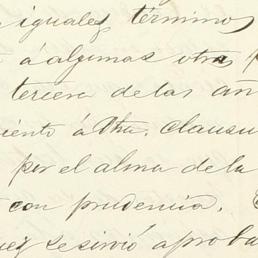 iguales términos
á algunas otras
tercera de las an
iento á dha. clausu
por el alma de la
con prudencia.
se sirvió aproba